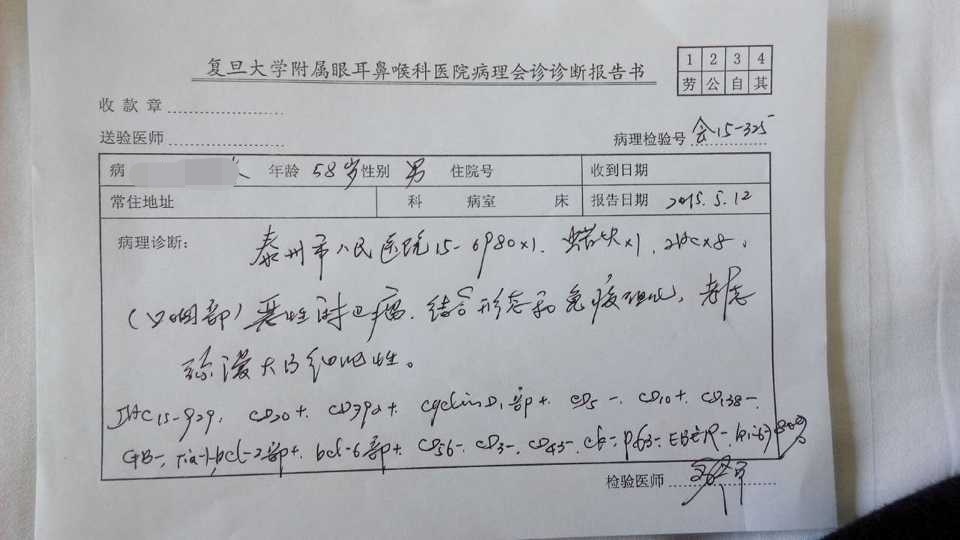 复旦大学附属眼耳鼻喉科医院病理会诊诊断报告书
1 2 3 4
劳 公 自 其
收款章
送验医师
病理检验号 会15-325
病 年龄 58岁 性别 男 住院号 收到日期
常住地址 科 病室 床 报告日期 2015.5.12
病理诊断: 泰州市人民医院15-6980×1. 蜡块×1, IHC×8.
(口咽部)恶性淋巴瘤. 结合形态和免疫组化, 考虑
弥漫大B细胞性。
IHC15-929: CD20+. CD79a+. cyclinD1部+. CD5-. CD10+. CD138-.
GB-. TIA-1-. bcl-2部+. bcl-6部+. CD56-. CD3-. CD43-. CK-. P63-. EBER-. ki-67
检验医师